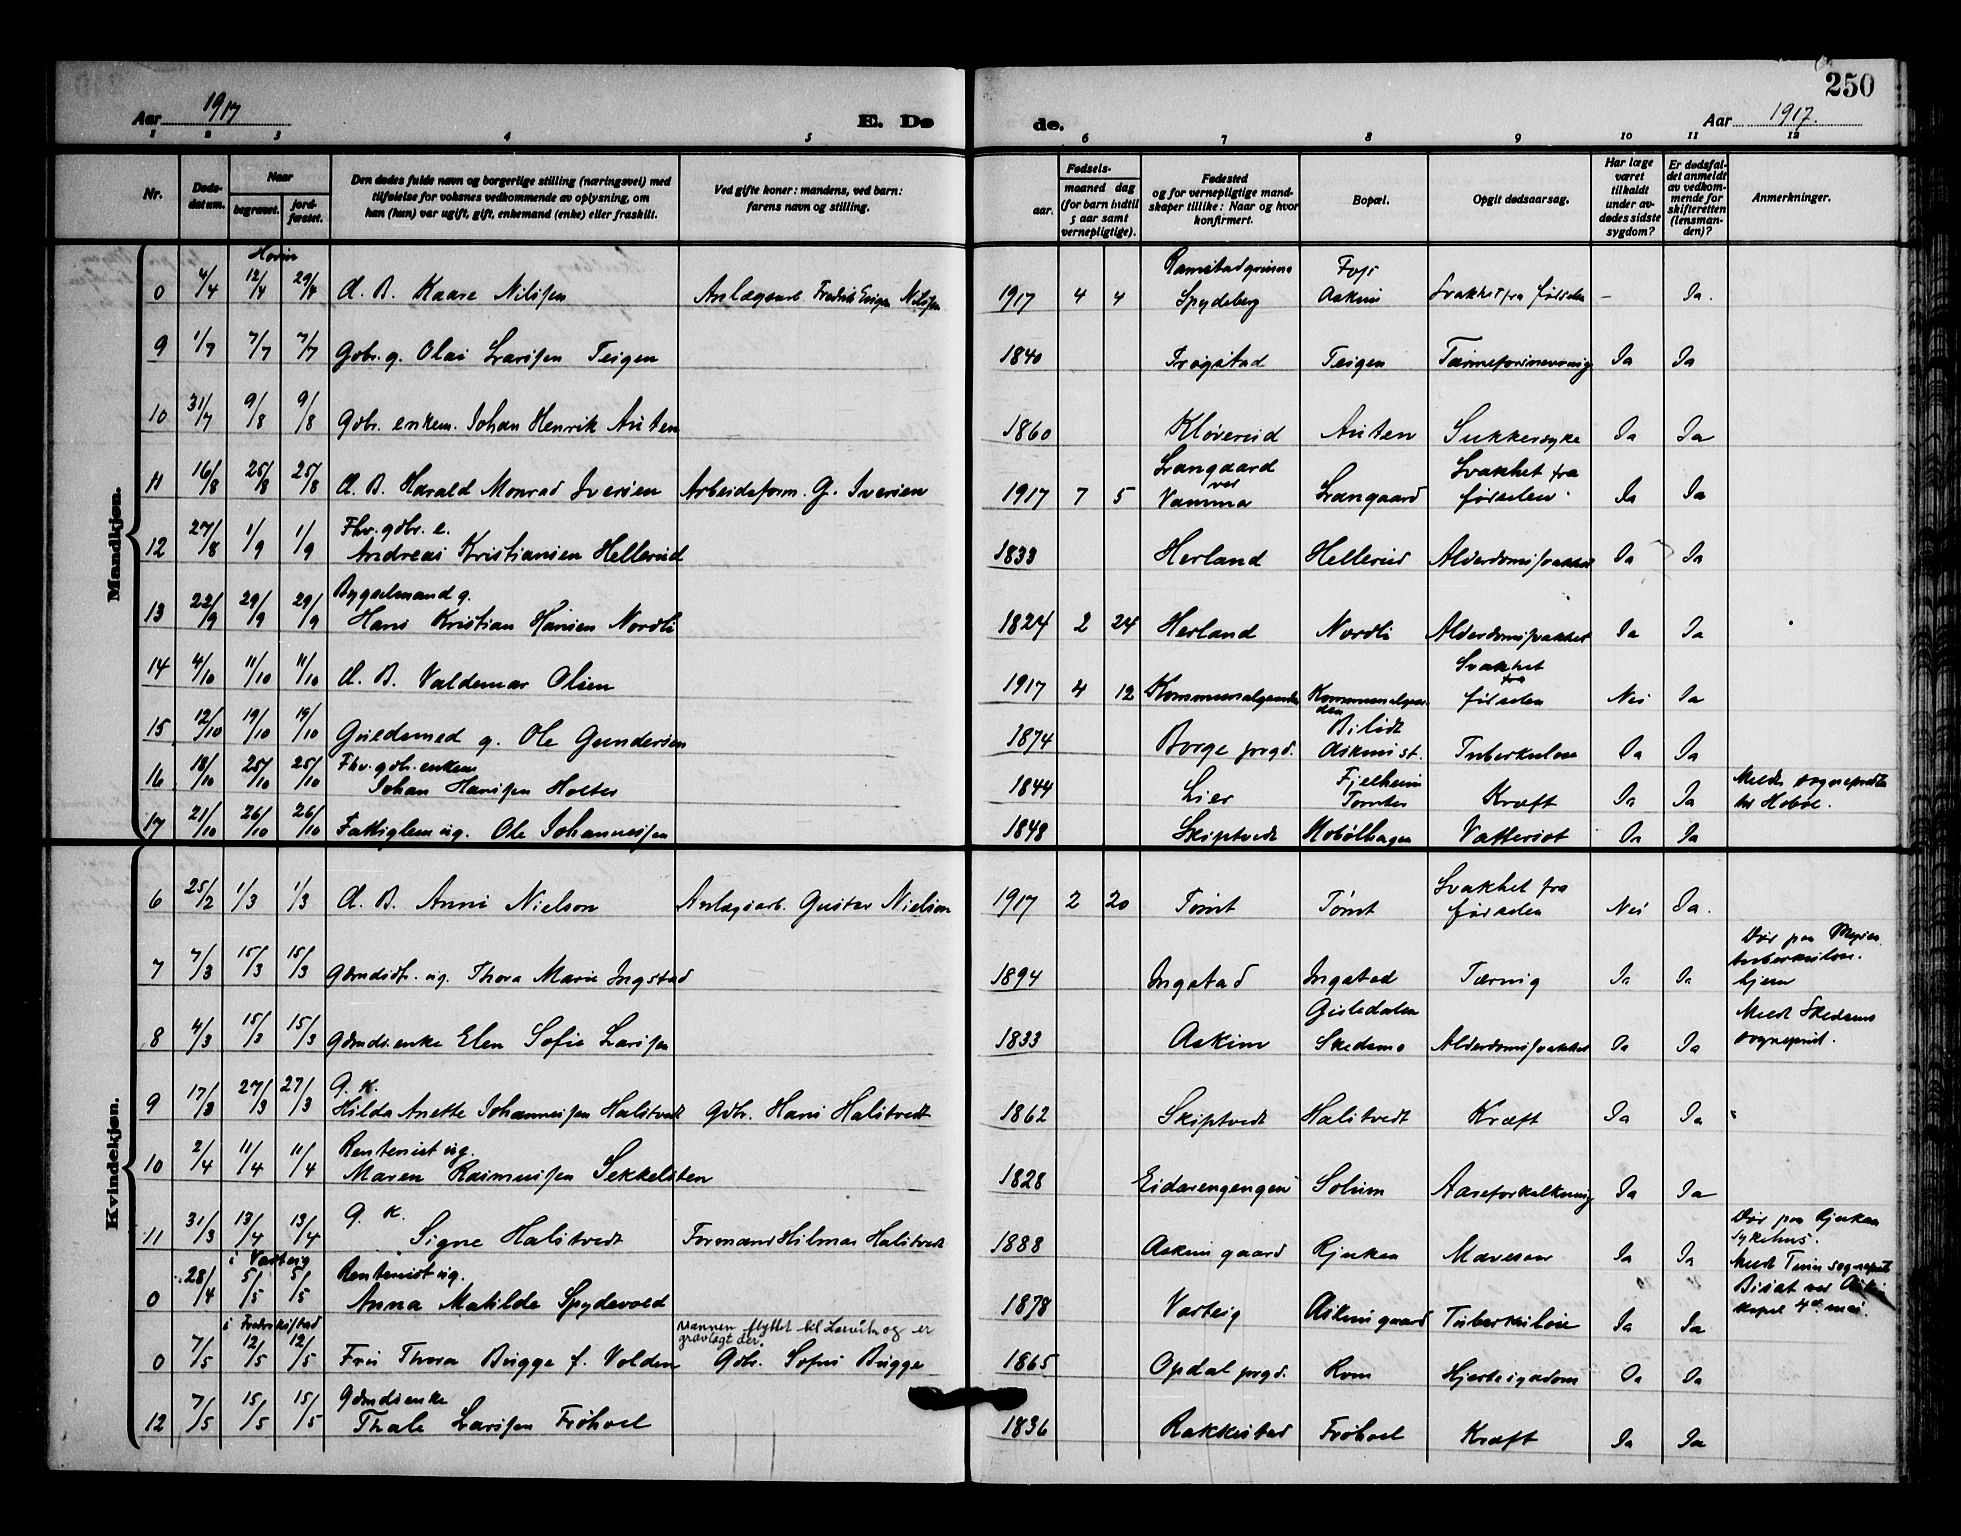 250
Aar 1917
E. Dø
de.
Aar 1917.
1 2 3 4 5 6 7 8 9 10 11 12
Nr.
Døds-
datum.
Naar
begravet.
jord-
fæstet.
Den dødes fulde navn og borgerlige stilling (næringsvei) med
tilføielse for voksnes vedkommende av oplysning, om
han (hun) var ugift, gift, enkemand (enke) eller fraskilt.
Ved gifte koner: mandens, ved barn:
farens navn og stilling.
Fødsels-
aar.
maaned dag
(for barn indtil
5 aar samt
vernepligtige).
Fødested
og for vernepligtige mand-
skaper tillike: Naar og hvor
konfirmert.
Bopæl.
Opgit dødsaarsag.
Har læge
været
tilkaldt
under av-
dødes sidste
sygdom?
Er dødsfal-
det anmeldt
av vedkom-
mende for
skifteretten
(lensman-
den)?
Anmerkninger.
Mandkjøn.
0 4/4 12/4 29/4 d. B. Kaare Nilssen Anlægsarb. Fredrik Nilssen 1917 4 4 Spydeberg Askim Svakhet fra førselen – Ja.
9 1/7 7/7 7/7 Gdbr. g. Olai Larssen Teigen 1840 Trøgstad Teigen Ja Ja
10 31/7 9/8 9/8 Gdbr. enkem. Johan Henrik Auten 1860 Kløvereid Auten Sukkersyke Ja Ja
11 16/8 25/8 25/8 d. B. Harald Monrad Iversen Arbeidsform. G. Iversen 1917 7 5 Langaard ved Vamma Langaard Svakhet fra førselen. Ja Ja
12 27/8 1/9 1/9 Fhv. gdbr. e.
Andreas Kristiansen Hellerud 1833 Herland Hellerud Alderdomssvakhet Ja Ja
13 22/9 29/9 29/9 Bygselmand g.
Hans Kristian Hansen Nordli 1824 2 24 Herland Nordli Alderdomssvakhet Ja Ja
14 4/10 11/10 11/10 d. B. Valdemar Olsen 1917 4 12 Kommunalgaarden Kommunalgaarden Svakhet fra førselen Nei Ja
15 12/10 19/10 19/10 Guldsmed g. Ole Gundersen 1874 Borge prgd. Bilidt Askim st. Tuberkulose Ja Ja
16 18/10 25/10 25/10 Fhv. gdbr. enkem.
Johan Hanssen Holter 1844 Lier Fjelheim Tomter Kræft Ja Ja Meldt sognepresten
for Hobøl.
17 21/10 26/10 26/10 Fattiglem ug. Ole Johannessen 1848 Skiptvedt Hobølhagen Vattersot Ja Ja
Kvindekjøn.
6 25/2 1/3 1/3 d. B. Anni Nielson Anlægsarb. Gustav Nielson 1917 2 20 Tømt Tømt Svakhet fra førselen Nei Ja.
7 7/3 15/3 15/3 Gdmdsdt. ug. Thora Marie Ingstad 1894 Ingstad Ingstad Tæring Ja Ja Død paa
tuberkulose-
hjem
8 4/3 15/3 15/3 Gdmds.enke Elen Sofie Larssen 1833 Askim Gisledalen Skedsmo Alderdomssvakhet Ja Ja Meldt Skedsmo
sogneprest.
9 17/3 27/3 27/3 G. k.
Hilda Anette Johannessen Halstvedt Gdbr. Hans Halstvedt 1862 Skiptvedt Halstvedt Kræft Ja Ja
10 2/4 11/4 11/4 Rentenist ug.
Maren Rasmussen Sekkelsten 1828 Eidarengengen Solum Aareforkalkning Ja Ja
11 31/3 13/4 13/4 G. k.
Signe Halstvedt Formand Hilmar Halstvedt 1888 Askim gaard Rjukan Mavesaar Ja Ja Død paa Rjukan
sykehus.
Meldt Tinn sogneprest
i Varteig
0 28/4 5/5 5/5 Rentenist ug.
Anna Matilde Spydevold 1878 Varteig Askim gaard Tuberkulose Ja Ja Bisat ved Askim
kapel 4de mai.
i Fredrikstad
0 7/5 12/5 12/5 Fru Thora Brygge f. Volden Mannen flyttet til Larvik og er
gravlagt der.
Gdbr. Sofus Brygge 1865 Opdal prgd. Rom Hjertesygdom Ja Ja
12 7/5 15/5 15/5 Gdmdsenke
Thale Larssen Frøhoel 1836 Rakkestad Frøhoel Kræft Ja Ja